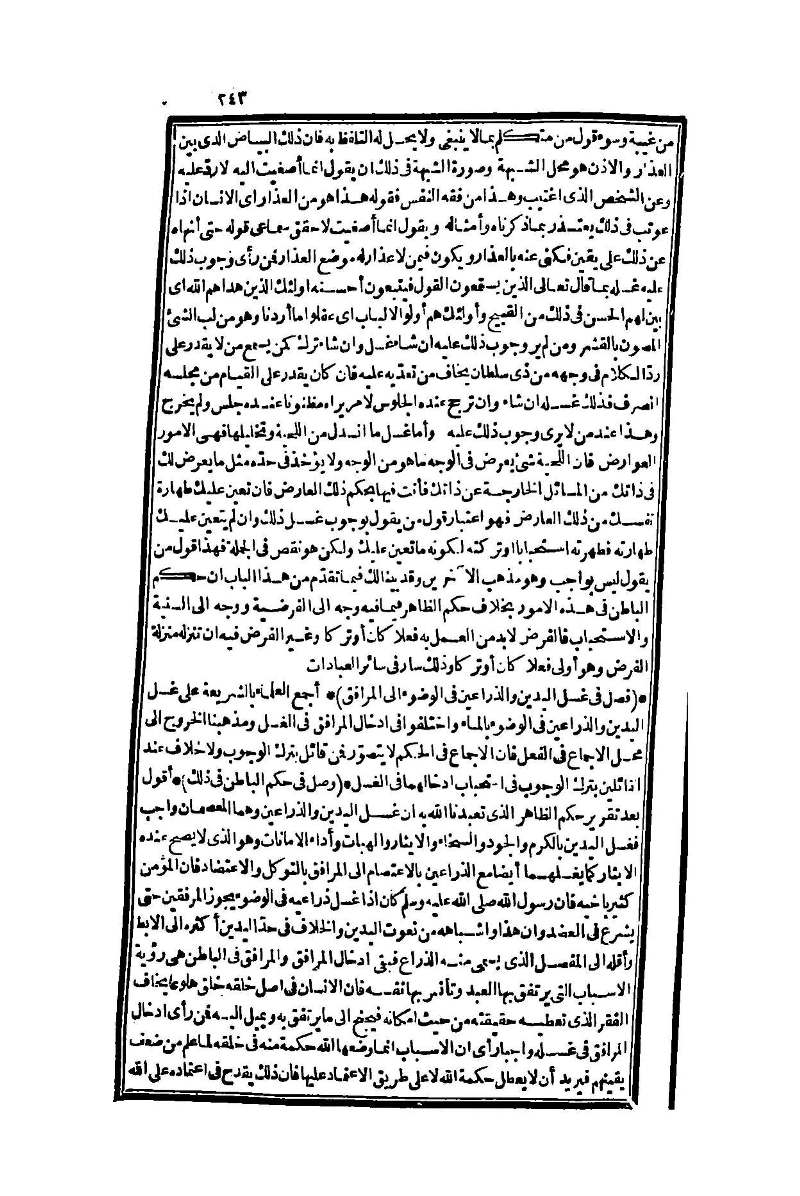 ٢٤٣
من غيبة وسوء قول من متكلم بما لا ينبغى ولا يحل له التلفظ به فان ذلك البياض الذى بين
العذار والاذن هو محل الشبهة وصورة الشبهة فى ذلك ان يقول انما أصغيت اليه لا رد عليه
وعن الشخص الذى اغتيب وهذا من فقه النفس فقوله هذا هو من العذار اى الانسان اذا
عوتب فى ذلك يعتذر بما ذكرناه وأمثاله ويقول انما أصغيت لا حقق سماعى قوله حتى أنهاه
عن ذلك على يقين فكنى عنه بالعذار ويكون فيمن لا عذار له موضع العذار فمن رأى وجوب ذلك
عليه غسله بما قال تعالى الذين يستمعون القول فيتبعون أحسنه اولئك الذين هداهم الله اى
بين لهم الحسن فى ذلك من القبيح وأولئك هم أولوا الالباب اى عقلوا ما أردنا وهو من لب الشئ
المصون بالقشر ومن لم ير وجوب ذلك عليه ان شاء غسل وان شاء ترك كمن يسمع من لا يقدر على
رد الكلام فى وجهه من ذى سلطان يخاف من تعديه عليه فان كان يقدر على القيام من مجلسه
انصرف فذلك غسله ان شاء وان ترجح عنده الجلوس لامر يراه مظنونا عنده جلس ولم يخرج
وهذا عند من لا يرى وجوب ذلك عليه وأما غسل ما انسدل من اللحية وتخليلها فهى الامور
العوارض فان اللحية شئ يعرض فى الوجه ما هو من الوجه ولا يؤخذ فى حده مثل ما يعرض لك
فى ذاتك من المسائل الخارجة عن ذاتك فأنت فيها بحكم ذلك العارض فان تعين عليك طهارة
نفسك من ذلك العارض فهو اعتبار قول من يقول بوجوب غسل ذلك وان لم يتعين عليك
طهارته فطهرته استحبابا او تركته لكونه ما تعين عليك ولكن هو نقص فى الجملة فهذا قول من
يقول ليس بواجب وهو مذهب الآخرين وقد بينا لك فيما تقدم من هذا الباب ان حكم
الباطن فى هذه الامور بخلاف حكم الظاهر فيما فيه وجه الى الفرضية ووجه الى السنة
والاستحباب فالفرض لا بد من العمل به فعلا كان أو تركا وغير الفرض فيه ان تنزله منزلة
الفرض وهو أولى فعلا كان أو تركا وذلك سار فى سائر العبادات
*(فصل فى غسل اليدين والذراعين فى الوضوء الى المرافق)* أجمع العلماء بالشريعة على غسل
اليدين والذراعين فى الوضوء بالماء واختلفوا فى ادخال المرافق فى الغسل ومذهبنا الخروج الى
محل الاجماع فى الفعل فان الاجماع فى الحكم لا يتصور فمن قائل بترك الوجوب ولا خلاف عند
القائلين بترك الوجوب فى استحباب ادخالهما فى الغسل *(وصل فى حكم الباطن فى ذلك)* أقول
بعد تقرير حكم الظاهر الذى تعبدنا الله به ان غسل اليدين والذراعين وهما المعصمان واجب
فغسل اليدين بالكرم والجود والسخاء والايثار والهبات وأداء الامانات وهو الذى لا يصح عنده
الايثار كما يغسلهما أيضا مع الذراعين بالاعتصام الى المرافق بالتوكل والاعتضاد فان المؤمن
كثير باخيه فان رسول الله صلى الله عليه وسلم كان اذا غسل ذراعيه فى الوضوء يجوز المرفقين حتى
يشرع فى العضد وان هذا واشباهه من نعوت اليدين والخلاف فى حد اليدين أكثره الى الابط
وأقله الى المفصل الذى يسمى منه الذراع فبقى ادخال المرافق والمرافق فى الباطن هى رؤية
الاسباب التى يرتفق بها العبد وتأنس بها نفسه فان الانسان فى اصل خلقه خلق هلوعا يخاف
الفقر الذى تعطيه حقيقته من حيث امكانه فيجنح الى ما يرتفق به ويميل اليه فمن رأى ادخال
المرافق فى غسله واجبا رأى ان الاسباب انما وضعها الله حكمة منه فى خلقه لما علم من ضعف
يقينهم فيريد أن لا يعطل حكمة الله لا على طريق الاعتماد عليها فان ذلك يقدح فى اعتماده على الله